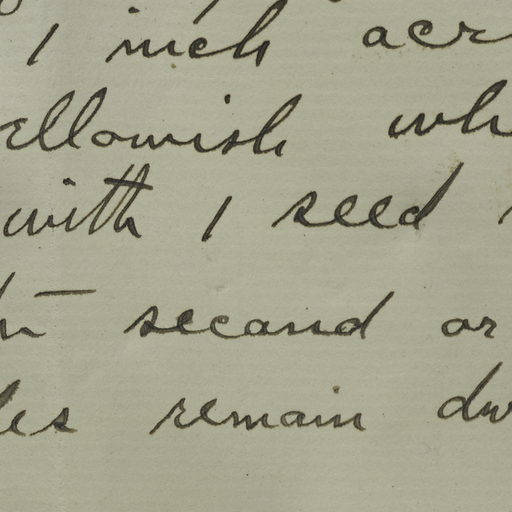 1 inch acr
ellowish wh
with 1 seed
second or
les remain dw